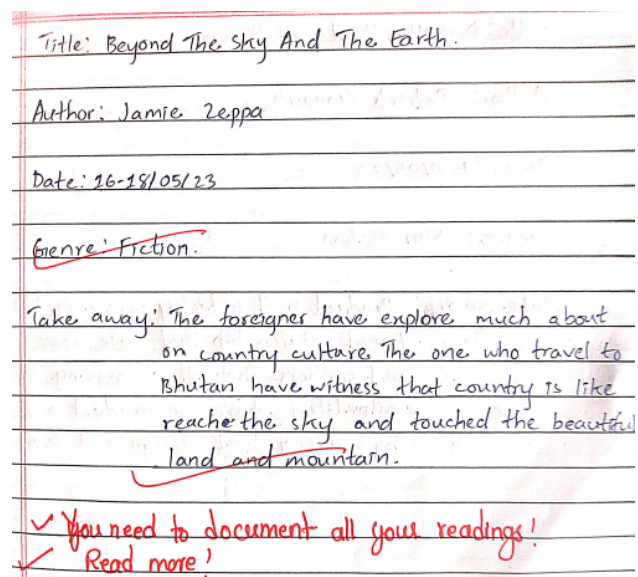 Title: Beyond The Sky And The Earth.
Author: Jamie Zeppa
Date: 16-18/05/23
Genre: Fiction.
Take away: The foreigner have explore much about
on country culture. The one who travel to
Bhutan have witness that country is like
reache the sky and touched the beautiful
land and mountain.
You need to document all your readings!
Read more!